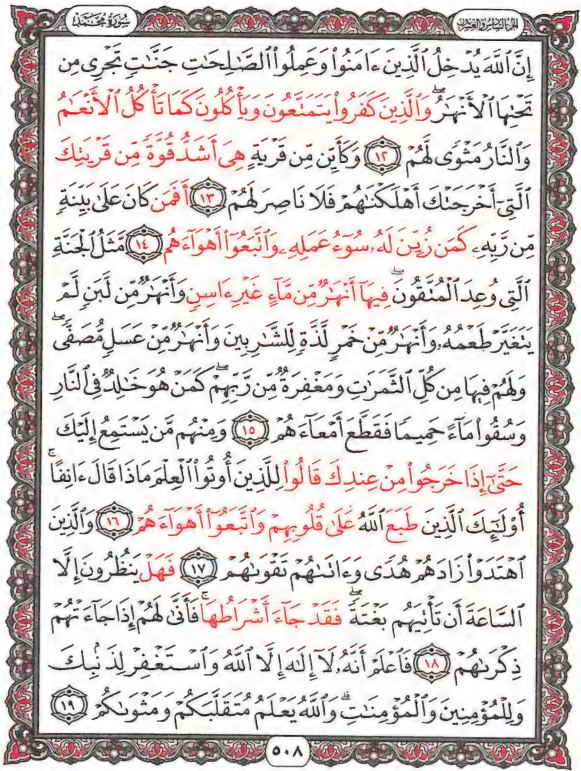 الجزء السادس والعشرون
سورة محمد
إِنَّ ٱللَّهَ يُدْخِلُ ٱلَّذِينَ ءَامَنُواْ وَعَمِلُواْ ٱلصَّٰلِحَٰتِ جَنَّٰتٍ تَجْرِى مِن
تَحْتِهَا ٱلْأَنْهَٰرُۖ وَٱلَّذِينَ كَفَرُواْ يَتَمَتَّعُونَ وَيَأْكُلُونَ كَمَا تَأْكُلُ ٱلْأَنْعَٰمُ
وَٱلنَّارُ مَثْوًى لَّهُمْ ١٢ وَكَأَيِّن مِّن قَرْيَةٍ هِىَ أَشَدُّ قُوَّةً مِّن قَرْيَتِكَ
ٱلَّتِىٓ أَخْرَجَتْكَ أَهْلَكْنَٰهُمْ فَلَا نَاصِرَ لَهُمْ ١٣ أَفَمَن كَانَ عَلَىٰ بَيِّنَةٍ
مِّن رَّبِّهِۦ كَمَن زُيِّنَ لَهُۥ سُوٓءُ عَمَلِهِۦ وَٱتَّبَعُوٓاْ أَهْوَآءَهُم ١٤ مَّثَلُ ٱلْجَنَّةِ
ٱلَّتِى وُعِدَ ٱلْمُتَّقُونَۖ فِيهَآ أَنْهَٰرٌ مِّن مَّآءٍ غَيْرِ ءَاسِنٍ وَأَنْهَٰرٌ مِّن لَّبَنٍ لَّمْ
يَتَغَيَّرْ طَعْمُهُۥ وَأَنْهَٰرٌ مِّنْ خَمْرٍ لَّذَّةٍ لِّلشَّٰرِبِينَ وَأَنْهَٰرٌ مِّنْ عَسَلٍ مُّصَفًّىۖ
وَلَهُمْ فِيهَا مِن كُلِّ ٱلثَّمَرَٰتِ وَمَغْفِرَةٌ مِّن رَّبِّهِمْۖ كَمَنْ هُوَ خَٰلِدٌ فِى ٱلنَّارِ
وَسُقُواْ مَآءً حَمِيمًا فَقَطَّعَ أَمْعَآءَهُمْ ١٥ وَمِنْهُم مَّن يَسْتَمِعُ إِلَيْكَ
حَتَّىٰٓ إِذَا خَرَجُواْ مِنْ عِندِكَ قَالُواْ لِلَّذِينَ أُوتُواْ ٱلْعِلْمَ مَاذَا قَالَ ءَانِفًاۚ
أُوْلَٰٓئِكَ ٱلَّذِينَ طَبَعَ ٱللَّهُ عَلَىٰ قُلُوبِهِمْ وَٱتَّبَعُوٓاْ أَهْوَآءَهُمْ ١٦ وَٱلَّذِينَ
ٱهْتَدَوْاْ زَادَهُمْ هُدًى وَءَاتَىٰهُمْ تَقْوَىٰهُمْ ١٧ فَهَلْ يَنظُرُونَ إِلَّا
ٱلسَّاعَةَ أَن تَأْتِيَهُم بَغْتَةًۖ فَقَدْ جَآءَ أَشْرَاطُهَاۚ فَأَنَّىٰ لَهُمْ إِذَا جَآءَتْهُمْ
ذِكْرَىٰهُمْ ١٨ فَٱعْلَمْ أَنَّهُۥ لَآ إِلَٰهَ إِلَّا ٱللَّهُ وَٱسْتَغْفِرْ لِذَنۢبِكَ
وَلِلْمُؤْمِنِينَ وَٱلْمُؤْمِنَٰتِۗ وَٱللَّهُ يَعْلَمُ مُتَقَلَّبَكُمْ وَمَثْوَىٰكُمْ ١٩
٥٠٨